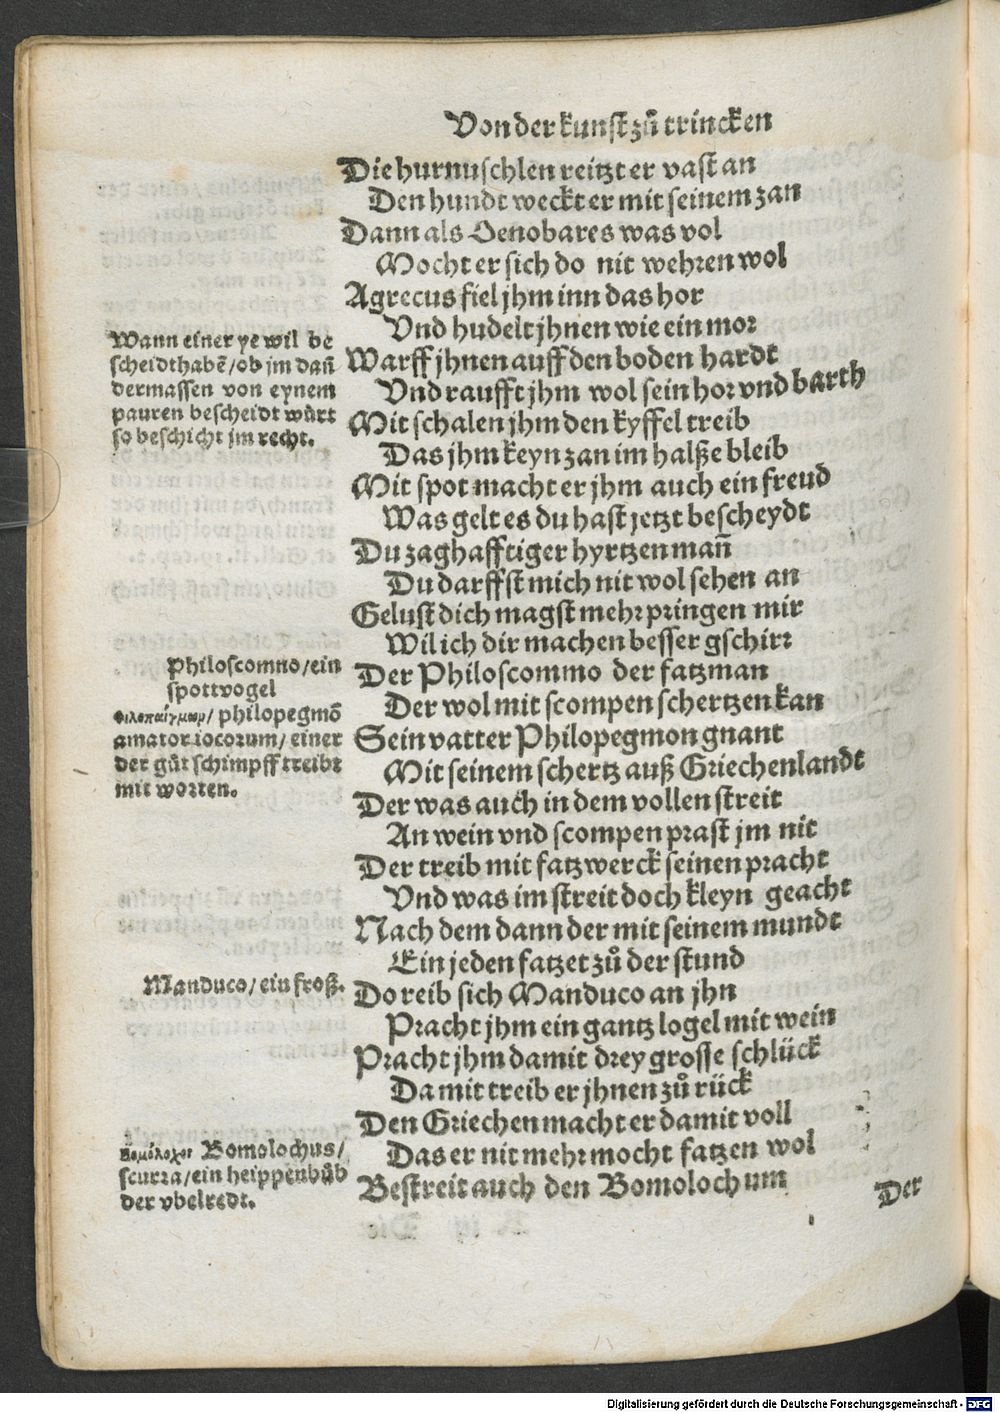 Von der kunst zů trincken
Die hurnuschlen reitzt er vast an
Den hundt weckt er mit seinem zan
Dann als Oenobares was vol
Mocht er sich do nit wehren wol
Agrecus fiel jhm inn das hor
Vnd hudelt jhnen wie ein mor
Warff jhnen auff den boden hardt
Vnd raufft jhm wol sein hor vnd barth
Mit schalen jhm den kyffel treib
Das jhm keyn zan im halße bleib
Mit spot macht er jhm auch ein freud
Was gelt es du hast jetzt bescheydt
Du zaghafftiger hyrtzen man̄
Du darffst mich nit wol sehen an
Gelust dich magst mehr pringen mir
Wil ich dir machen besser gschirr
Der Philoscommo der fatzman
Der wol mit scompen schertzen kan
Sein vatter Philopegmon gnant
Mit seinem schertz auß Griechenlandt
Der was auch in dem vollen streit
An wein vnd scompen prast jm nit
Der treib mit fatzwerck seinen pracht
Vnd was im streit doch kleyn geacht
Nach dem dann der mit seinem mundt
Ein jeden fatzet zů der stund
Do reib sich Manduco an jhn
Pracht jhm ein gantz logel mit wein
Pracht jhm damit drey grosse schlück
Damit treib er jhnen zů rück
Den Griechen macht er damit voll
Das er nit mehr mocht fatzen wol
Bestreit auch den Bomolochum
Der
Wann einer ye wil be
scheidt habē/ob jm dañ
dermassen von eynem
pauren bescheidt würt
so beschicht jm recht.
Philoscomno/ein
spottvogel
Φιλοπαίγμωρ/philopegmō
amator iocorum/einer
der gůt schimpff treibt
mit worten.
Manduco/ein froß.
Βομόλοχος Bomolochus/
scurra/ein heippenbůb
der vbelredt.
Digitalisierung gefördert durch die Deutsche Forschungsgemeinschaft - DFG